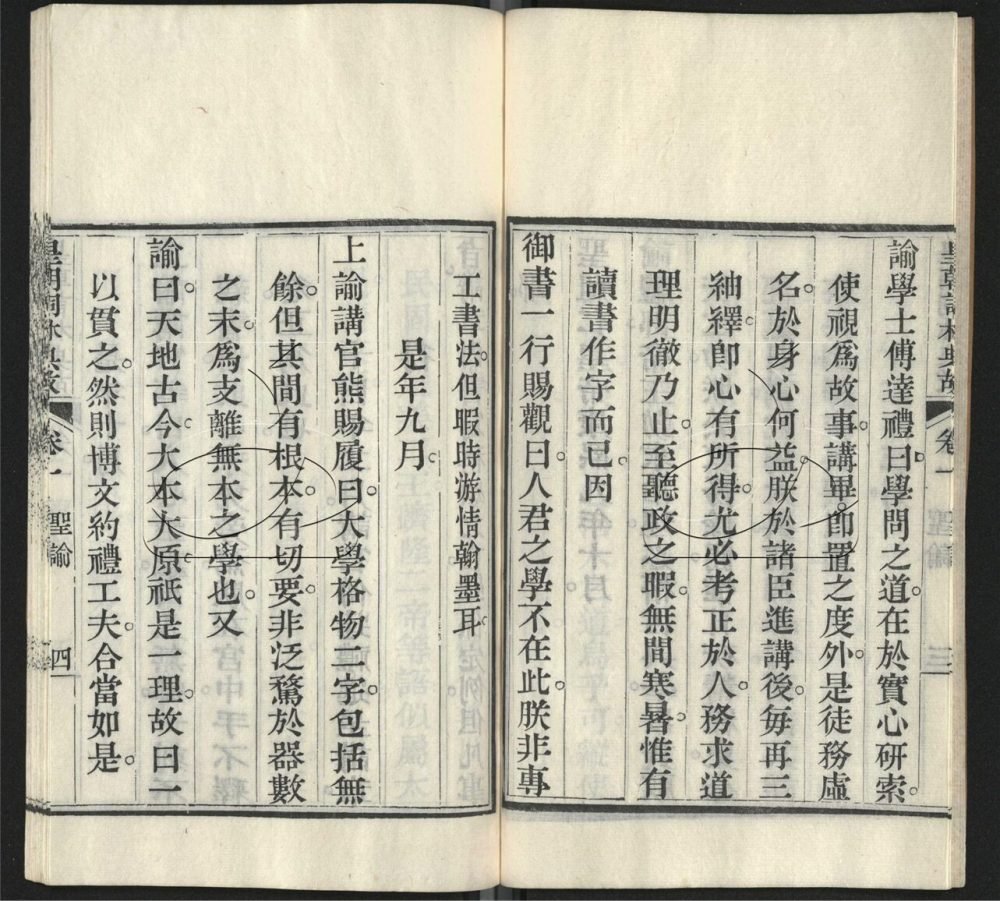 皇朝詞林典故 卷一 聖諭 三
諭學士傅達禮曰學問之道。在於實心研索。
使視爲故事。講畢卽置之度外。是徒務虛
名。於身心何益。朕於諸臣進講後。每再三
紬繹。卽心有所得。尤必考正於人。務求道
理明徹乃止。至聽政之暇。無間寒暑。惟有
讀書作字而已。因
御書一行賜觀曰。人君之學不在此。朕非專
工書法。但暇時游情翰墨耳。
是年九月。
上諭講官熊賜履曰。大學格物二字。包括無
餘。但其間有根本。有切要。非泛騖於器數
之末。爲支離無本之學也。又
諭曰。天地古今。大本大原。祇是一理。故曰一
以貫之。然則博文約禮工夫。合當如是。
皇朝詞林典故 卷一 聖諭 四